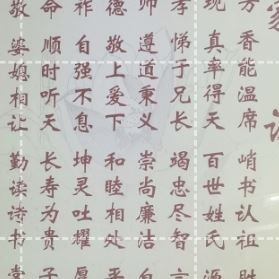 香能温席 书认祖
现 真率得天 百世姓氏 源
孝 悌于兄长 竭忠尽智 言
师 遵道秉义 崇尚廉洁 自
德 敬上爱下 和睦相处 平
祚 自强不息 坤灵吐耀 厚
命 顺时听天 长寿为贵 子
敬 婆媳相让 勤读诗书 常